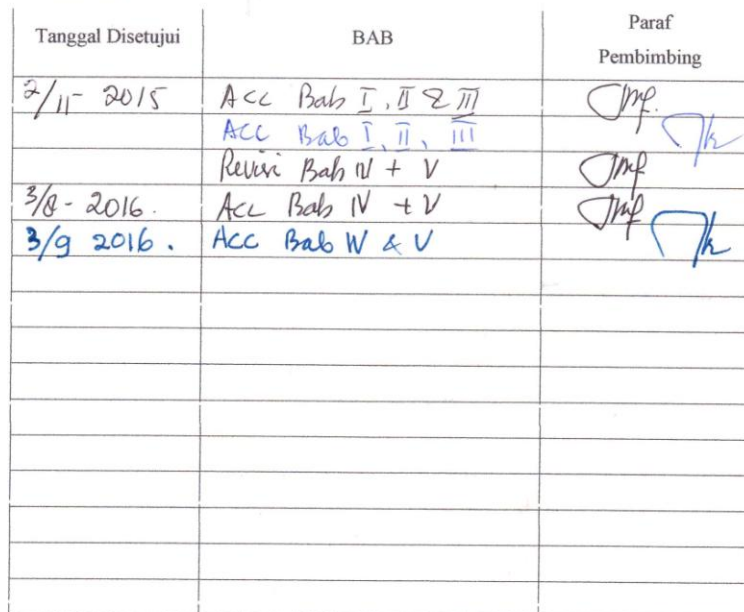 Tanggal Disetujui BAB Paraf
Pembimbing
2/11- 2015 Acc Bab I, II & III
Acc Bab I, II, III
Revisi Bab IV + V
3/8 - 2016. Acc Bab IV + V
3/9 2016. Acc Bab IV & V